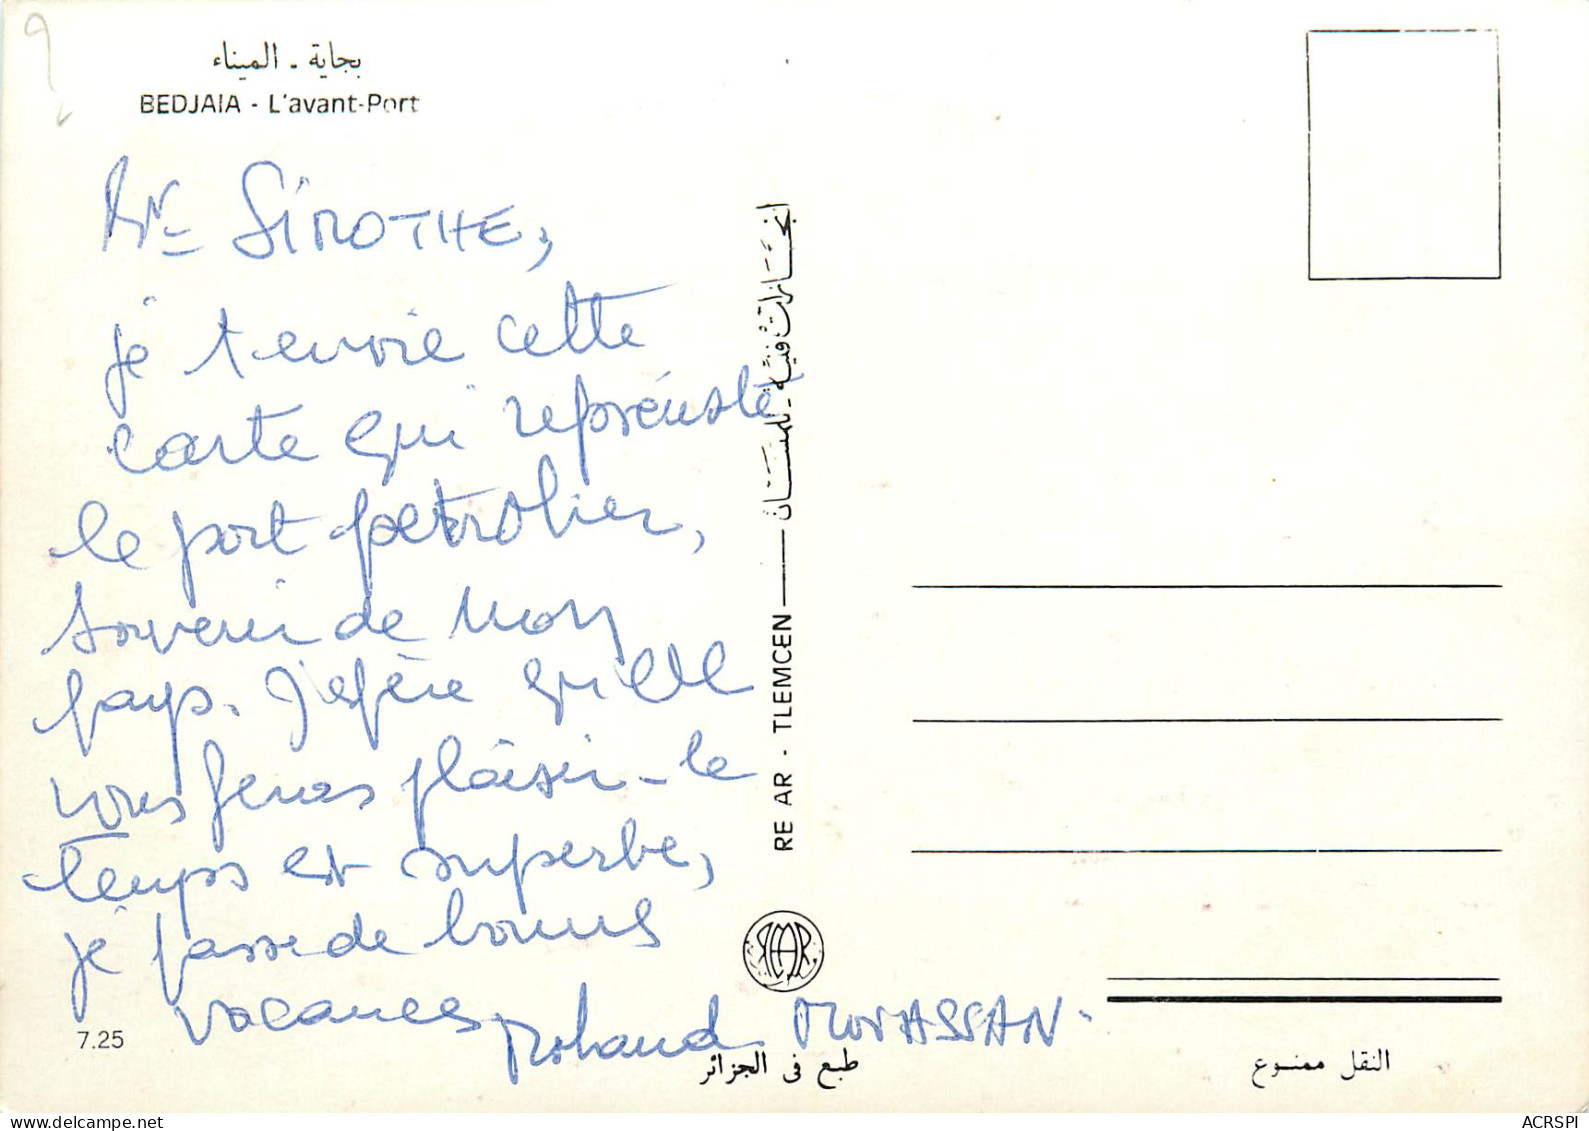 بجاية - الميناء
BEDJAIA - L'avant-Port
Mr SIROTHE,
je t envoie cette
carte qui représente
le port pétrolier,
souvenir de mon
pays. J'espère qu'elle
vous feras plaisir - le
temps est superbe,
je passe de bonnes
vacances.
Mohand MOUASSAN.
7.25
RE AR - TLEMCEN
طبع في الجزائر
النقل ممنوع
www.delcampe.net
ACRSPI